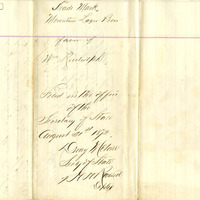 Trade Mark
Mountain
favor of
Wm
Filed in the office
of the
Secretary of State
August 31st 18
Drury Melone
Secy of State
Depty